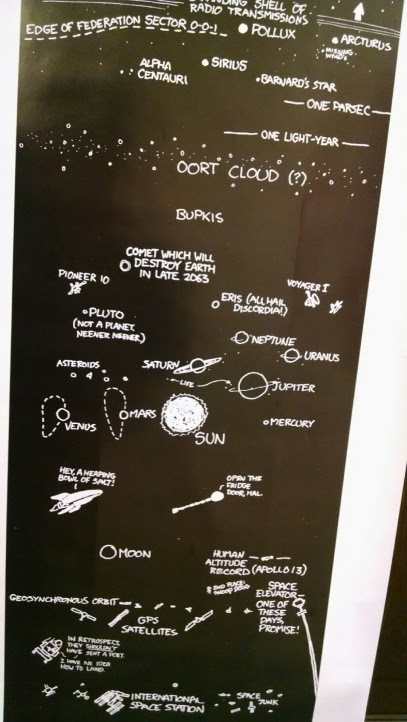 SHELL OF
RADIO TRANSMISSIONS
EDGE OF FEDERATION SECTOR 0-0-1
POLLUX
ARCTURUS
MISSING
WNBA'S
ALPHA
CENTAURI
SIRIUS
BARNARD'S STAR
ONE PARSEC
ONE LIGHT-YEAR
OORT CLOUD (?)
BUPKIS
COMET WHICH WILL
DESTROY EARTH
IN LATE 2063
PIONEER 10
VOYAGER I
ERIS (ALL HAIL
DISCORDIA!)
PLUTO
(NOT A PLANET.
NEENER NEENER)
NEPTUNE
URANUS
ASTEROIDS
SATURN
LIFE
JUPITER
VENUS
MARS
SUN
MERCURY
HEY, A HEAPING
BOWL OF SALT!
OPEN THE
FRIDGE
DOOR, HAL.
MOON
HUMAN
ALTITUDE
RECORD (APOLLO 13)
2ND PLACE:
SNOOP DOGG
SPACE
ELEVATOR
ONE OF
THESE
DAYS,
PROMISE!
GEOSYNCHRONOUS ORBIT
GPS
SATELLITES
IN RETROSPECT,
THEY SHOULDN'T
HAVE SENT A POET.
I HAVE NO IDEA
HOW TO LAND.
INTERNATIONAL
SPACE STATION
SPACE
JUNK